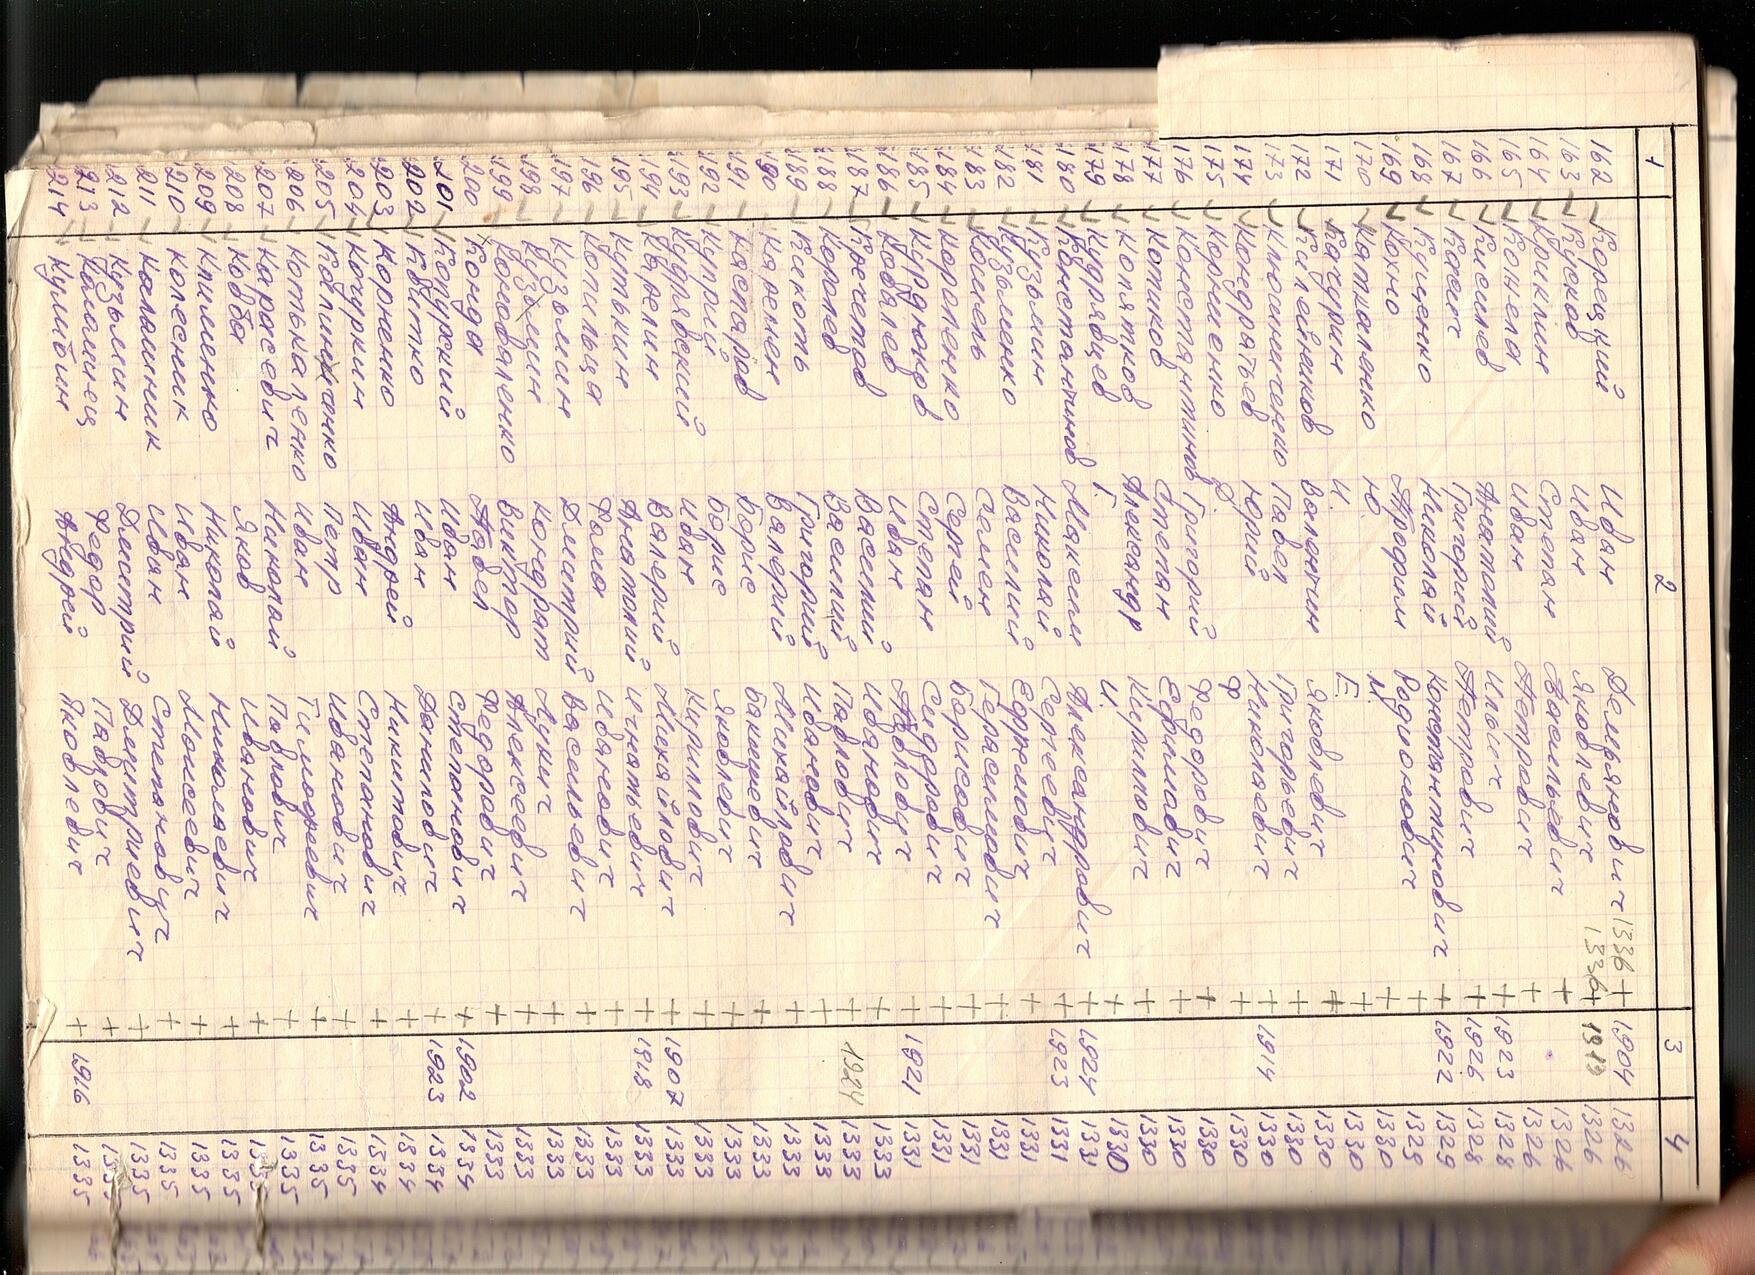 1 2 3 4
162 Корецкий Иван Демьянович 1336 + 1904 1326
163 Кусков Иван Яковлевич 1336 + 1913 1326
164 Криклин Степан Васильевич + 1326
165 Иван Петрович + 1326
166 Киселев Анатолий Ильич + 1923 1328
167 Касич Григорий Петрович + 1926 1328
168 Куценко Николай Константинович + 1922 1329
169 Кохно Трофим Родионович + 1329
170 Каткаленко Ю. М. + 1330
171 Качурин И. Е. + 1330
172 Килейников Валентин Яковлевич + 1330
173 Климениченко Павел Григорьевич + 1330
174 Кондратьев Юрий Николаевич + 1914 1330
175 Корниенко Ф. + 1330
176 Константинов Григорий Федорович + 1330
177 Котиков Степан Ефимович + 1330
178 Копятков Александр Кириллович + 1330
179 Кудрявцев Г. И. + 1924 1331
180 Константинов Максим Александрович + 1923 1331
181 Кузьмин Николай Сергеевич + 1331
182 Кузьменко Василий Ефимович + 1331
183 Кошель Семен Герасимович + 1331
184 Короленко Сергей Борисович + 1331
185 Курдюков Степан Сидорович + 1921 1331
186 Ковалев Иван Павлович + 1333
187 Кречетов Василий Иванович + 1924 1333
188 Королев Василий Павлович + 1333
189 Кекоть Григорий Иванович + 1333
190 Каренен Валерий Михайлович + 1333
191 Каспаров Борис + 1333
192 Куприй Борис Яковлевич + 1333
193 Кудрявский Иван Кириллович + 1907 1333
194 Карелин Валерий Михайлович + 1918 1333
195 Кутькин Анатолий Игнатьевич + 1333
196 Копильца Фома Иванович + 1333
197 Кузьмин Дмитрий Васильевич + 1333
198 Кузьмин Кондрат Лукич + 1333
199 Коноваленко Виктор Алексеевич + 1333
200 Конда Павел Федорович + 1902 1334
201 Копурский Иван Степанович + 1923 1334
202 Квитко Иван Данилович + 1334
203 Корненко Андрей Никитович + 1334
204 Кочуркин Иван Степанович + 1335
205 Петр Иванович + 1335
206 Котькаленко Иван Тимофеевич + 1335
207 Карасевич Николай Павлович + 1335
208 Ковба Яков Иванович + 1335
209 Клименко Николай Николаевич + 1335
210 Колесник Иван Моисеевич + 1335
211 Калашник Иван Степанович + 1335
212 Кузьмин Дмитрий Дмитриевич + 1335
213 Каламиец Федор Павлович + 1335
214 Кулибин Андрей Яковлевич + 1916 1335